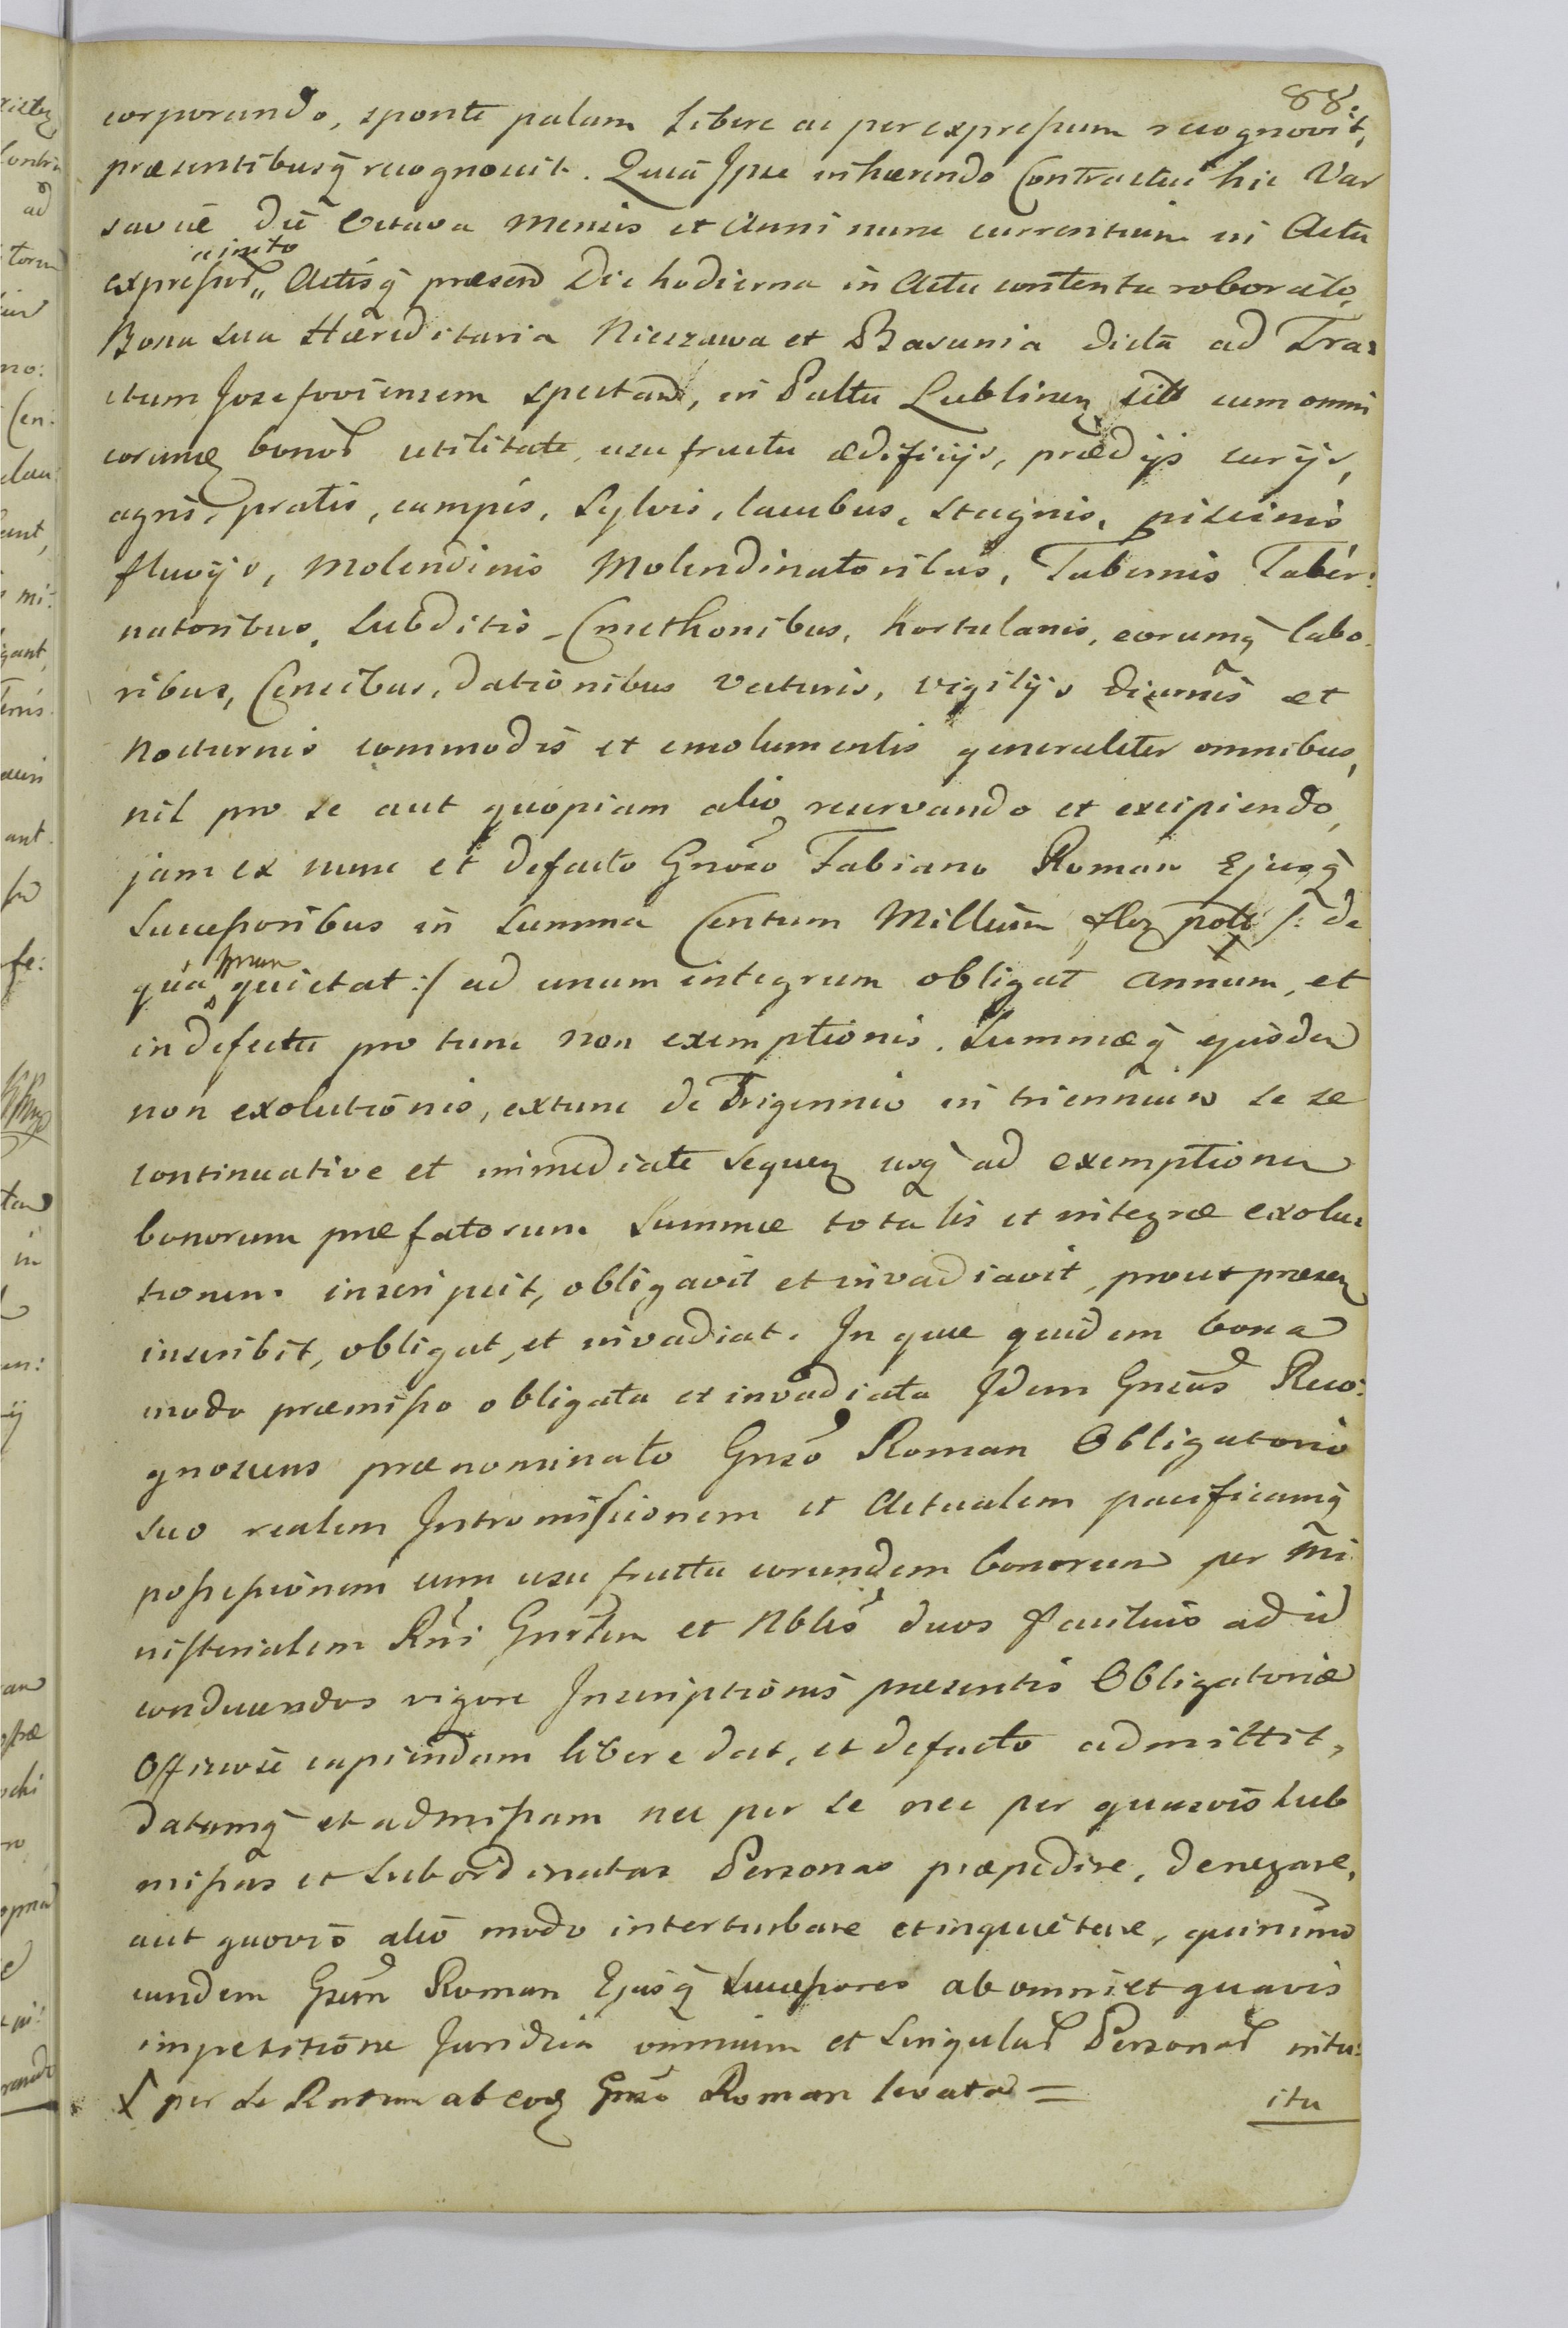 88.
corporando, sponte palam Libere ac per expressum recognovit,
præsentibusq̃ recognovit. Quia Ipse inhærendo Contractui hic Var
saviæ die Octava Mensis et Anni nunc currentium in Actu
expressor„ inito Actisq̃ præsen Die hodierna in Actu contenta roborato,
Bona sua Hæreditaria Nieszawa et Basunia dicta ad Tra=
ctum Josefoviensem spectan, in Palttu Lublinen sitt cum omni
eorumq bonor utilitate, usufructu ædificijs, prædijs curijs,
agris, pratis, campis, Sylvis, lacubus, stagnis, piscinis
fluvijs, Molendinis Molendinatoribus, Tabernis Taber:
natoribus, Subditis Cmethonibus, Hortulanis, eorumq̃ labo
ribus, Censibus, dationibus vecturis, vigilijs diurnis et
Nocturnis commodis et emolumentis generaliter omnibus,
nil pro se aut quopiam alio reservando et excipiendo,
jam ex nunc et defacto Gnoso Fabiano Roman Ejusq̃
Successoribus in Summa Centum Millium flor poll /: de
qua quietat :/ ad unum integrum obligat annum, et
in defectu pro tunc non exemptionis. Summæq̃ ejusdem
non exolutionis, extunc de Trigennio in triennium se se
continuative et immediate sequen usq̃ ad exemptionem
bonorum præfatorum Summæ totalis et integræ exolu=
tionem inscripsit, obligavit et invadiavit, prout præsen
inscribit, obligat, et invadiat. In quæ quidem bona
modo præmisso obligata et invadiata Idem Gnsus Reco:
gnoscens prænominato Gnso Roman Obligatorio
suo realem Intromissionem et Actualem pacificamq̃
possessionem cum usufructu eorundem bonorum per Mi
nisterialem Rni Gnrlem et Nbles duos facilius ad id
conducendos vigore Inscriptionis præsentis Obligatoriæ
Officiose capiendam libere dat, et defacto admittit,
datamq̃ et admissam nec per se nec per quasvis sub
missas et subordinatas Personas præpedire, denegare,
aut quovis alio modo interturbare et inquietare, quinimo
eundem Gsum Roman Ejusq̃ Successores ab omni et quavis
impetitione Juridica omnium et Singular Personar intu:
X per se Rntem ab eod Gnso Roman levata =
itu